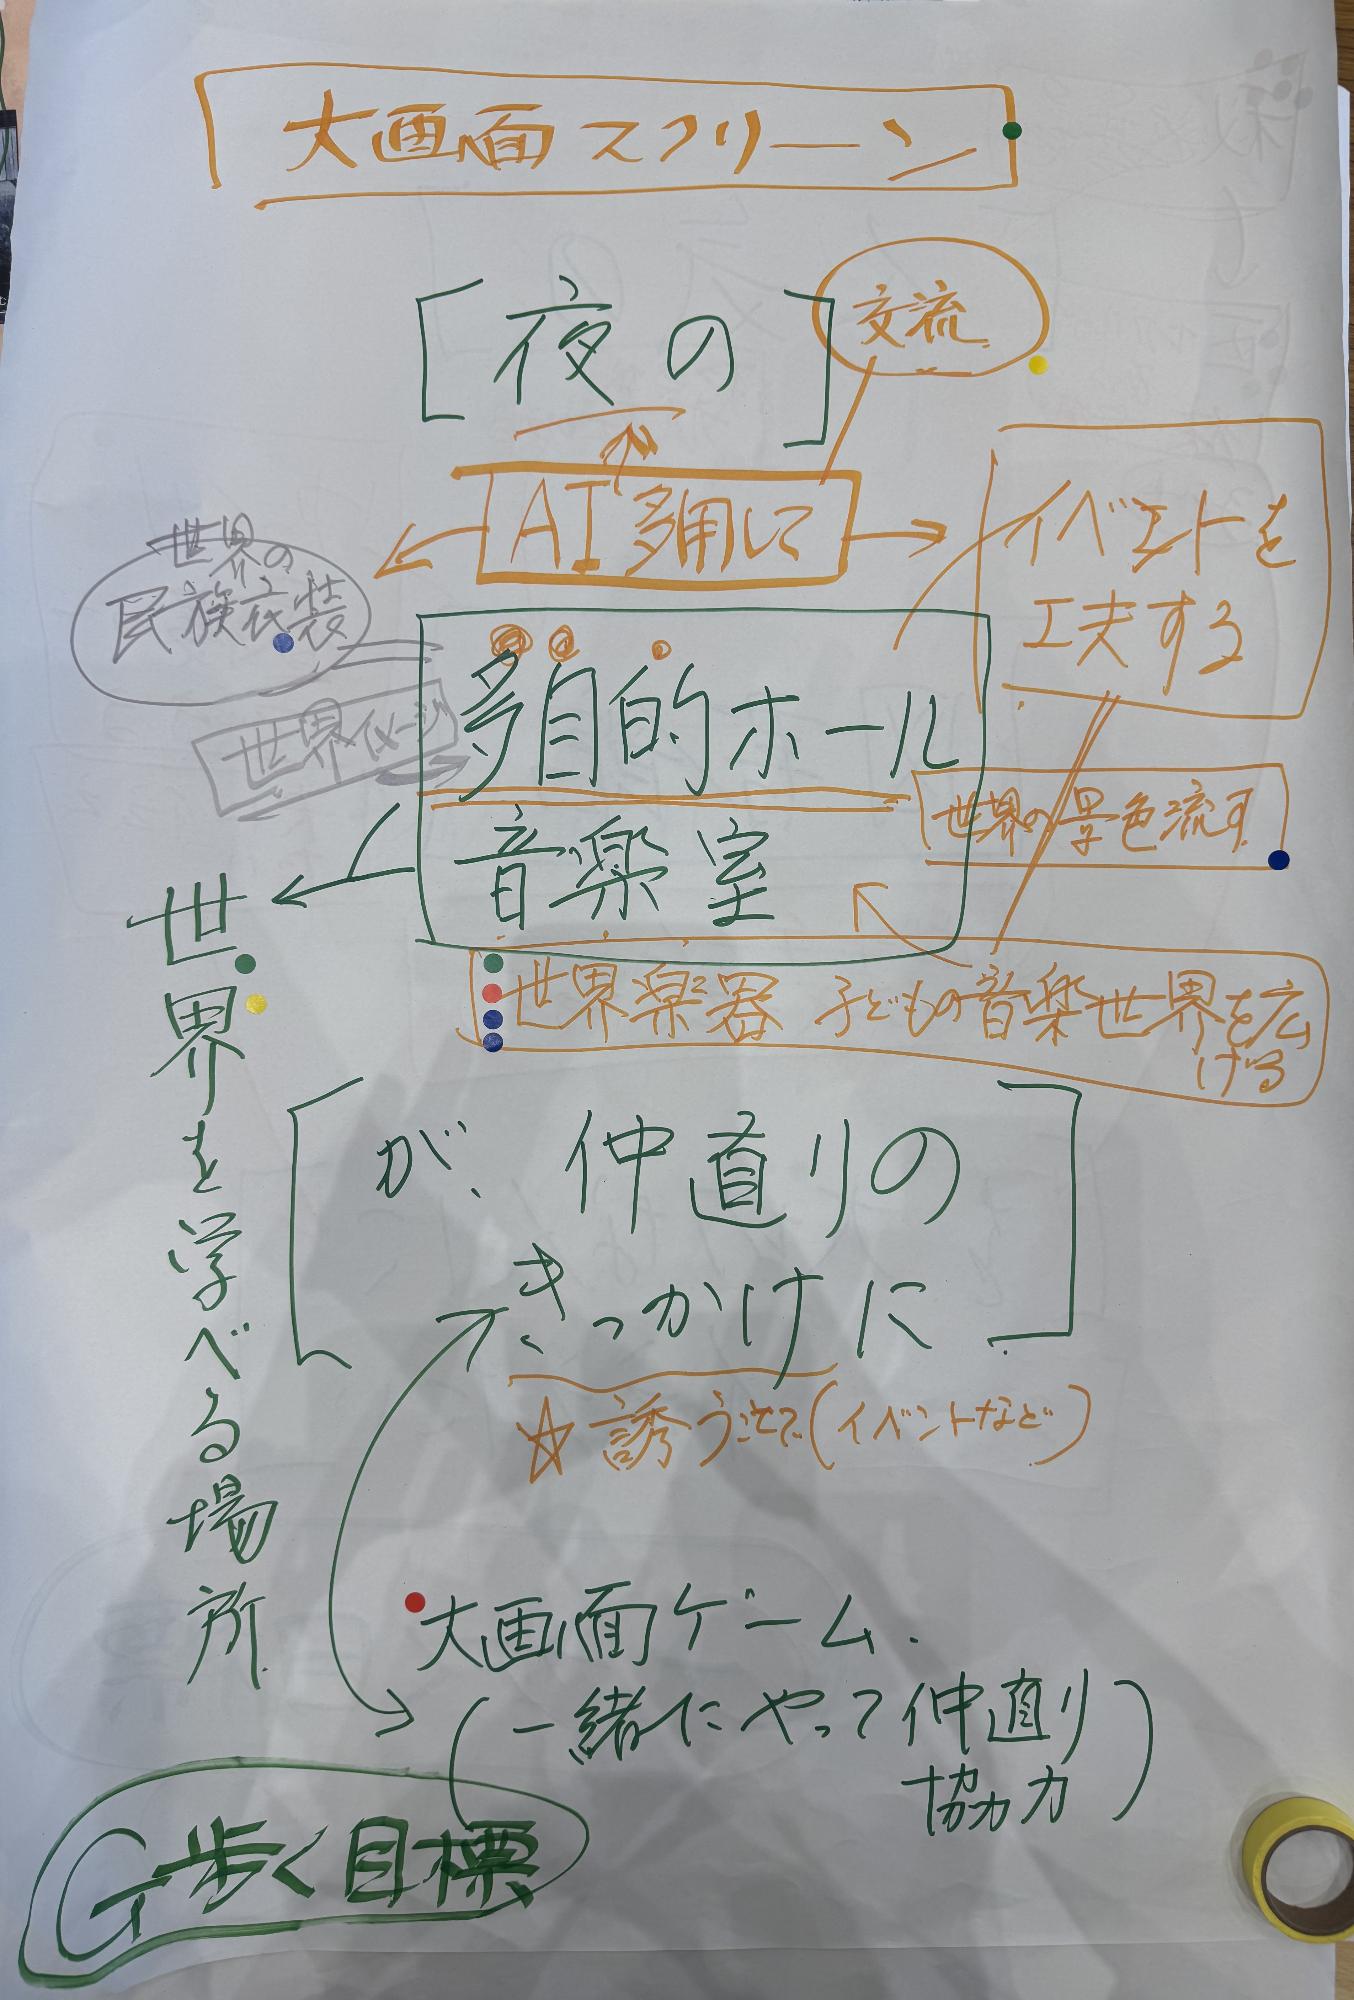 大画面スクリーン
夜の
交流
AI多用して
イベントを
工夫する
世界の
民族衣装
世界
多目的ホール
音楽室
世界の景色流す
世界楽器 子どもの音楽世界を広
げる
世界を学べる場所
が、仲直りの
きっかけに
☆誘う (イベントなど)
大画面ゲーム.
(一緒にやって仲直り
協力)
歩く目標